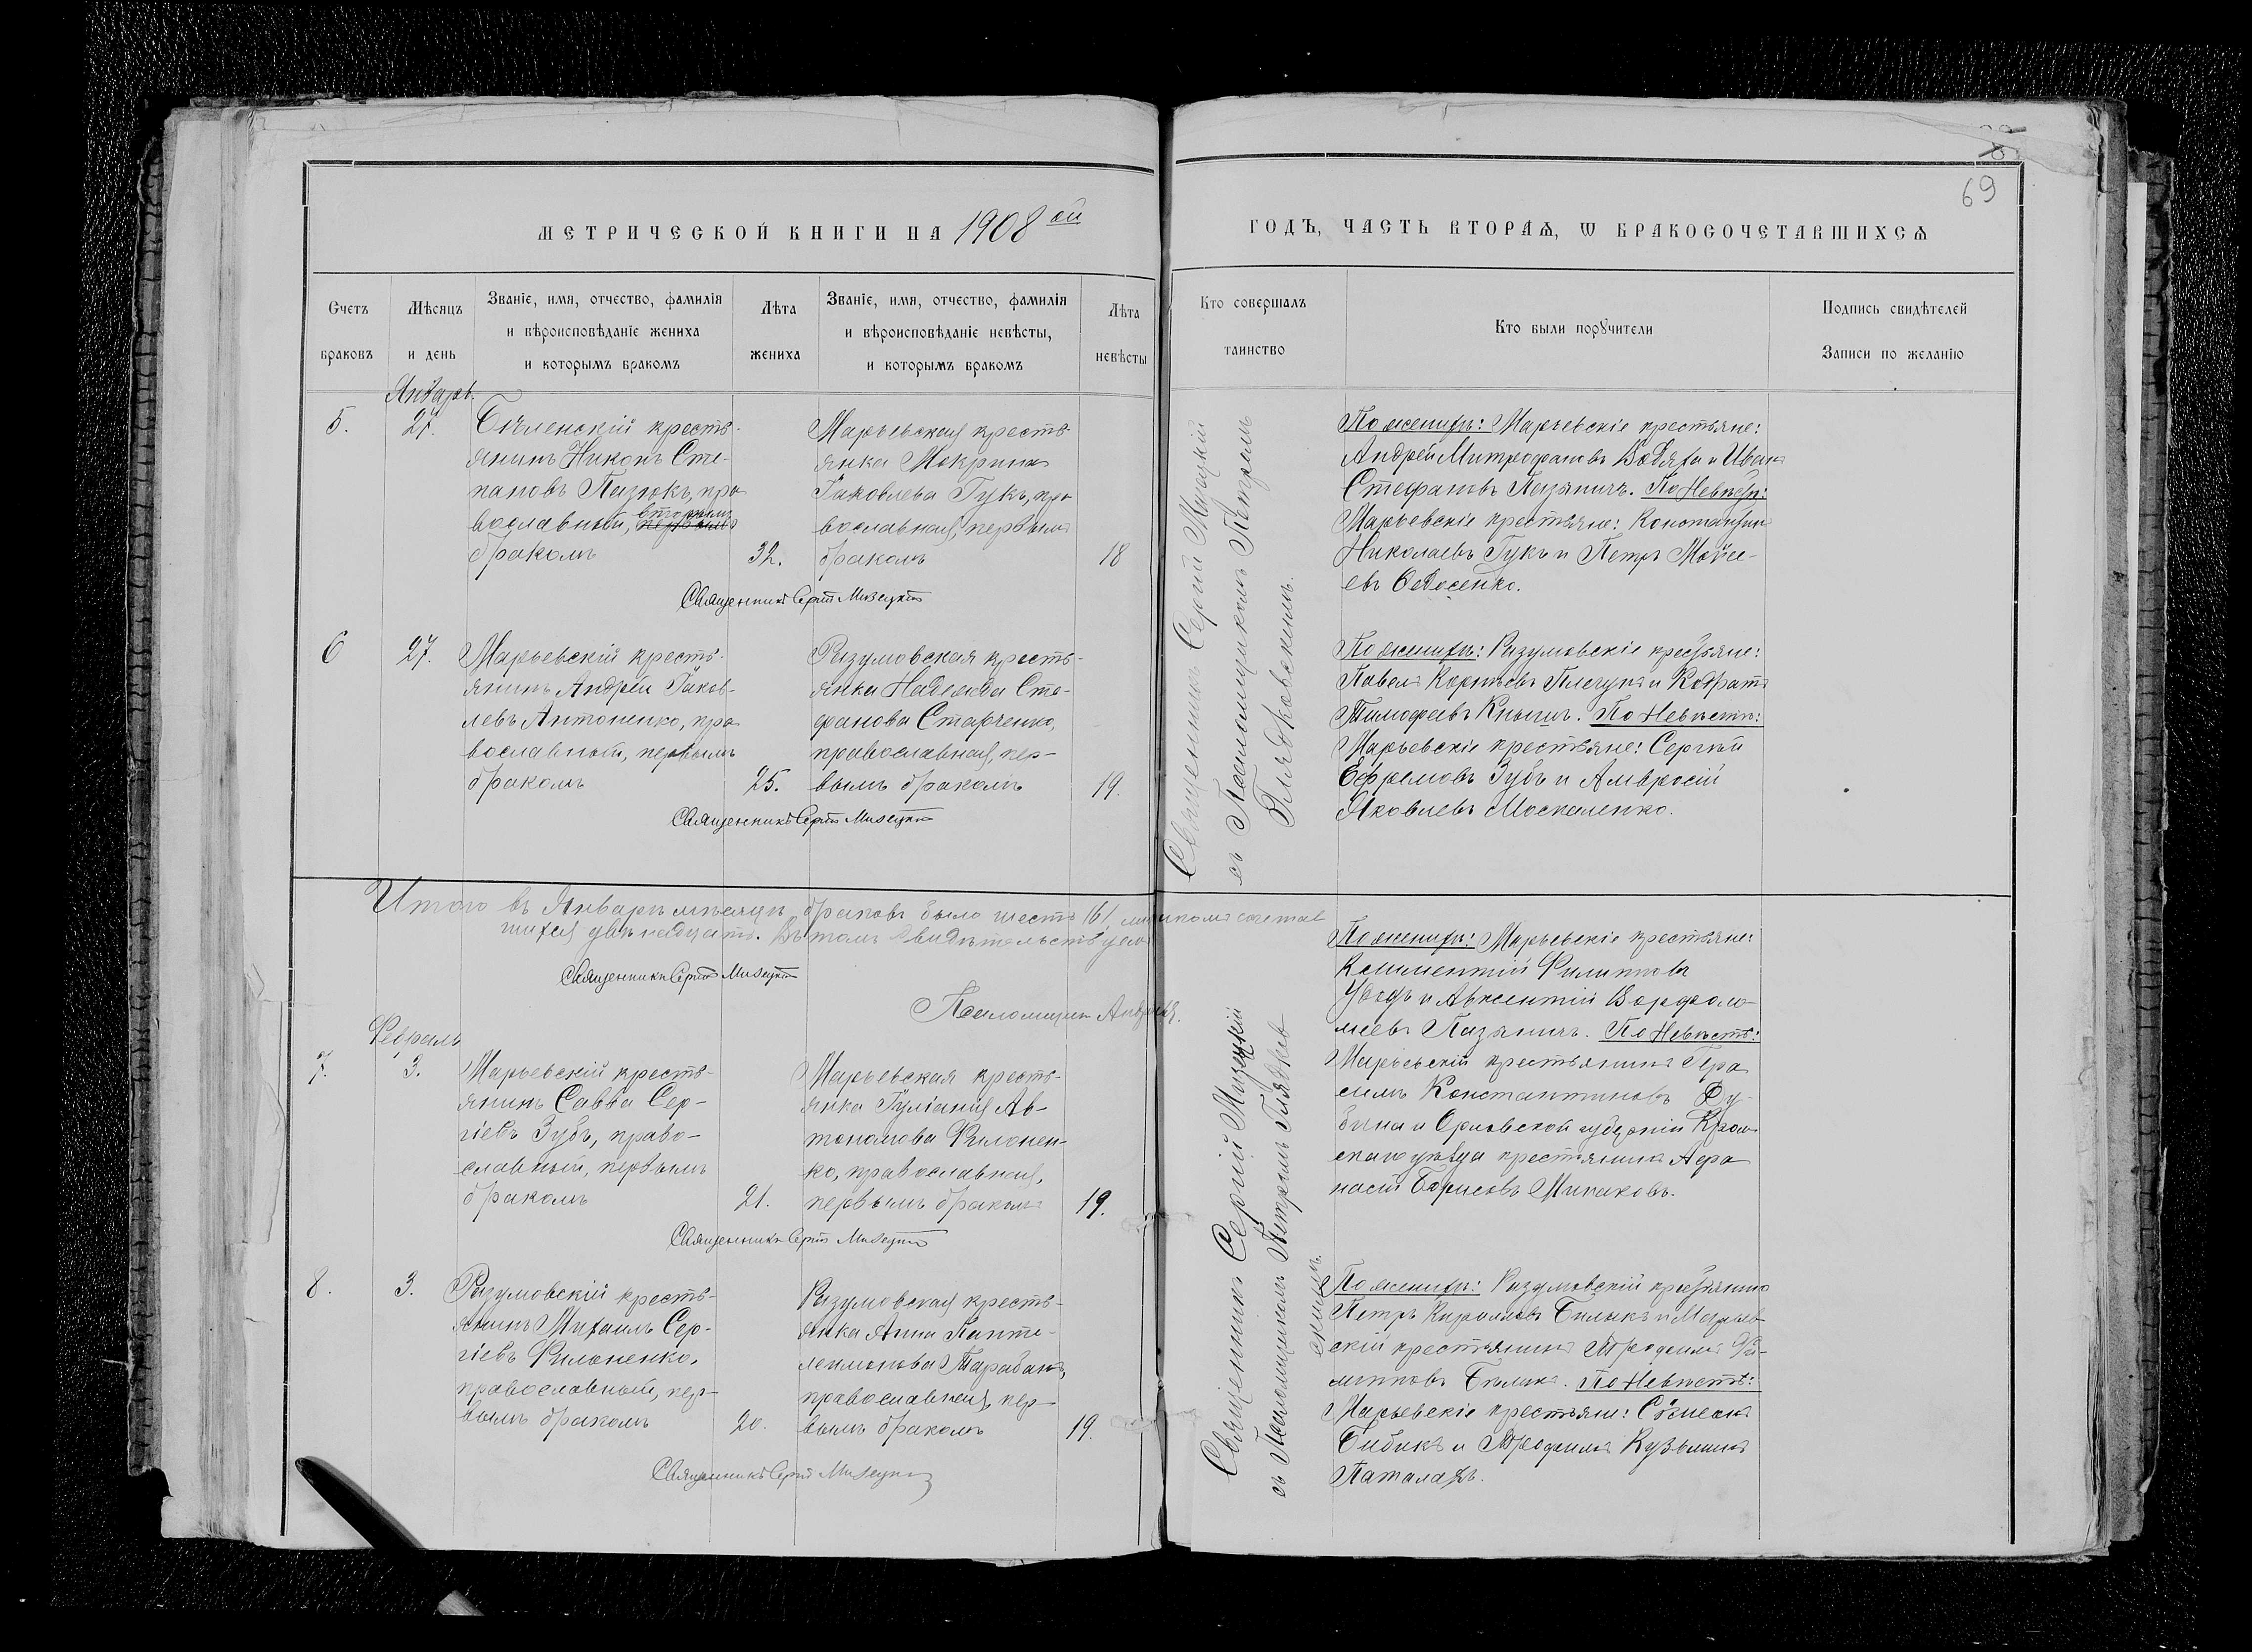 МЕТРИЧЕСКОЙ КНИГИ НА 1908 ой
ГОДЪ, ЧАСТЬ ВТОРАѦ, Ѡ БРАКОСОЧЕТАВШИХСѦ
69
Счетъ браковъ
Мѣсяцъ и день
Званіе, имя, отчество, фамилія
и вѣроисповѣданіе жениха
и которымъ бракомъ
Лѣта жениха
Званіе, имя, отчество, фамилія
и вѣроисповѣданіе невѣсты,
и которымъ бракомъ
Лѣта невѣсты
Кто совершалъ таинство
Кто были поручители
Подпись свидѣтелей
Записи по желанію
Январь
5.
27.
Бѣленскій кресть-
янинъ Никонъ Сте-
пановъ Пазюкъ, пра
вославный, вторымъ первымъ
бракомъ
32.
Марьевская кресть-
янка Мокрина
Іаковлева Гукъ, пра
вославная, первымъ
бракомъ
18
Священникъ Сергій Мизецкій
Священникъ Сергій Мизецкій
съ Псаломщикомъ Петромъ
По женихѣ: Марьевскіе крестьяне:
Андрей Митрофановъ Водяха и Иванъ
Стефановъ Пазяничъ. По Невѣстѣ:
Марьевскіе крестьяне: Константинъ
Николаевъ Гукъ и Петръ Мойсе-
евъ Федосенко.
6
27.
Марьевскій кресть-
янинъ Андрей Іаков-
левъ Антоненко, пра
вославный, первымъ
бракомъ
25.
Разумовская кресть-
янка Надежда Сте-
фанова Старченко,
православная, пер-
вымъ бракомъ
19.
Священникъ Сергій Мизецкій
По женихѣ: Разумовскіе крестьяне:
Павелъ Корнѣевъ Плечунъ и Кодратъ
Тимофеевъ Кнышъ. По Невѣстѣ:
Марьевскіе крестьяне: Сергѣй
Ефремовъ Зубъ и Амвросій
Яковлевъ Москаленко.
Итого въ Январѣ мѣсяцѣ браковъ было шесть /6/ лицъ сочетав
шихся двѣнадцать. Въ томъ свидѣтельствуемъ
Священникъ Сергій Мизецкій
Псаломщикъ
Февраль
7.
3.
Марьевскій кресть-
янинъ Савва Сер-
гіевъ Зубъ, право-
славный, первымъ
бракомъ
21.
Марьевская кресть-
янка Іуліанія Ав-
тономова Филонен-
ко, православная,
первымъ бракомъ
19.
Священникъ Сергій Мизецкій
Священникъ Сергій Мизецкій
съ Псаломщикомъ Петромъ
По женихѣ: Марьевскіе крестьяне:
Климентій Филипповъ
и Авксентій Варфоло-
меевъ Пазяничъ. По Невѣстѣ:
Марьевскій крестьянинъ Гера
симъ Константиновъ Ду-
бина и Орловской губерніи
скаго уѣзда крестьянинъ Афа
насій Борисовъ Минаковъ.
8.
3.
Разумовскій кресть-
янинъ Михаилъ Сер-
гіевъ Филоненко,
православный, пер-
вымъ бракомъ
20.
Разумовская кресть-
янка Анна Панте-
леимонова Тарабанъ,
православная, пер-
вымъ бракомъ
19.
Священникъ Сергій Мизецкій
По женихѣ: Разумовскій крестьянинъ
Петръ Кирилловъ Билыкъ и Марьев-
скій крестьянинъ Трофимъ Фи-
липповъ Билыкъ. По Невѣстѣ:
Марьевскіе крестьяне:
Бибикъ и Трофимъ Кузьминъ
Паталахъ.